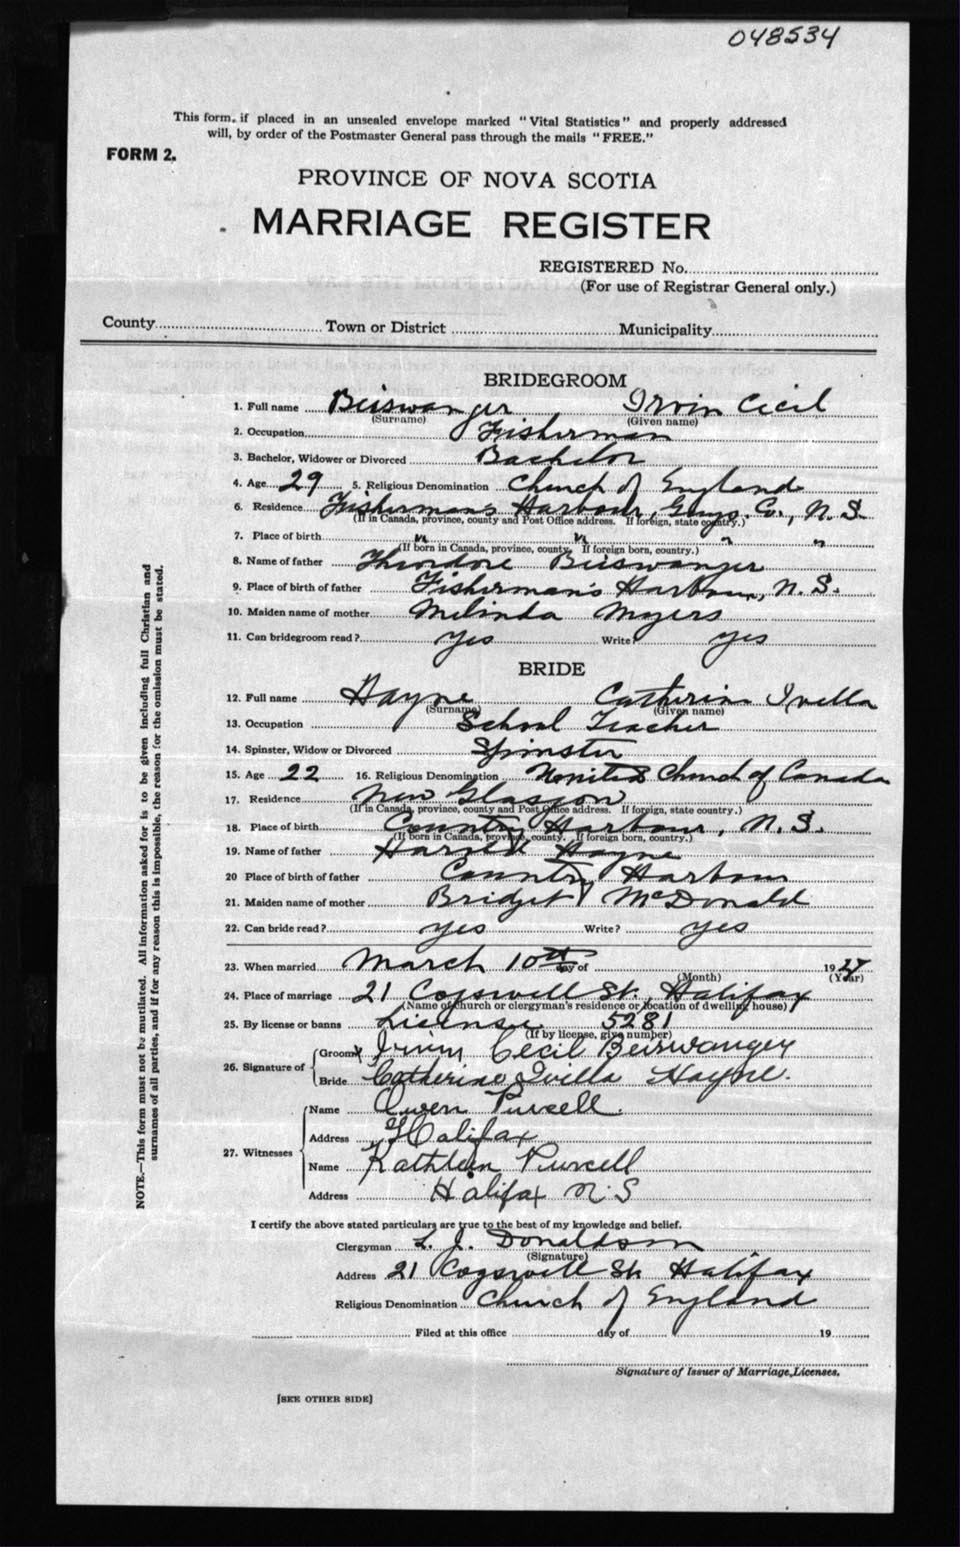 048534
This form, if placed in an unsealed envelope marked "Vital Statistics" and properly addressed
will, by order of the Postmaster General pass through the mails "FREE."
FORM 2.
PROVINCE OF NOVA SCOTIA
MARRIAGE REGISTER
REGISTERED No.
(For use of Registrar General only.)
County Town or District Municipality
BRIDEGROOM
1. Full name Beiswanger Irvin Cecil
(Surname) (Given name)
2. Occupation Fisherman
3. Bachelor, Widower or Divorced Bachelor
4. Age 29 5. Religious Denomination Church of England
6. Residence Fisherman's Harbour, Guys. Co., N.S.
(If in Canada, province, county and Post Office address. If foreign, state country.)
7. Place of birth " " " "
(If born in Canada, province, county. If foreign born, country.)
8. Name of father Theodore Beiswanger
9. Place of birth of father Fisherman's Harbour, N.S.
10. Maiden name of mother Melinda Myers
11. Can bridegroom read? yes Write? yes
BRIDE
12. Full name Hayne Catherine Ivella
(Surname) (Given name)
13. Occupation School Teacher
14. Spinster, Widow or Divorced Spinster
15. Age 22 16. Religious Denomination United Church of Canada
17. Residence New Glasgow
(If in Canada, province, county and Post Office address. If foreign, state country.)
18. Place of birth Country Harbour, N.S.
(If born in Canada, province, county. If foreign born, country.)
19. Name of father Harold Hayne
20 Place of birth of father Country Harbour
21. Maiden name of mother Bridget McDonald
22. Can bride read? yes Write? yes
23. When married March 10th day of 19
(Month) (Year)
24. Place of marriage 21 Cogswell St., Halifax
(Name of church or clergyman's residence or location of dwelling house)
25. By license or banns License 5281
(If by license, give number)
26. Signature of Groom Irvin Cecil Beiswanger
Bride Catherine Ivella Hayne.
27. Witnesses Name Owen Purcell.
Address Halifax
Name Kathleen Purcell
Address Halifax N.S
I certify the above stated particulars are true to the best of my knowledge and belief.
Clergyman L. J. Donaldson
(Signature)
Address 21 Cogswell St. Halifax
Religious Denomination Church of England
Filed at this office day of 19
Signature of Issuer of Marriage Licenses.
[SEE OTHER SIDE]
NOTE.—This form must not be mutilated. All information asked for is to be given including full Christian and
surnames of all parties, and if for any reason this is impossible, the reason for the omission must be stated.